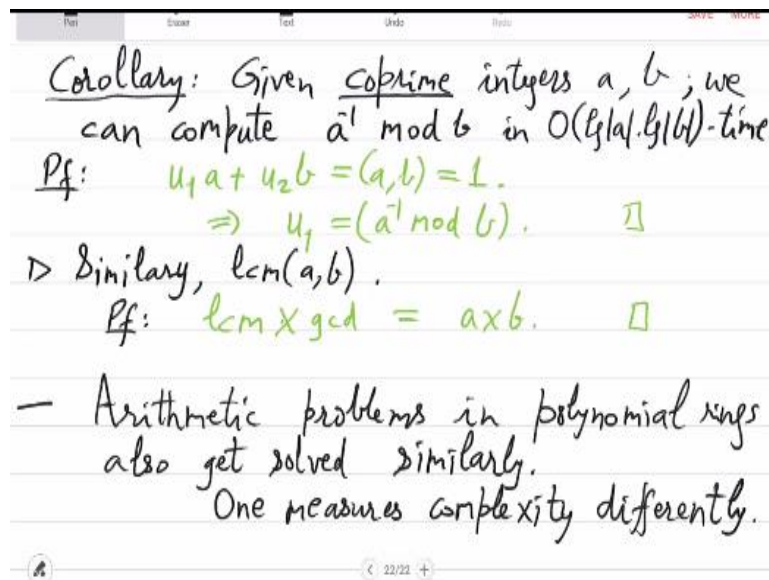 Pen Eraser Text Undo Redo SAVE MORE
Corollary: Given coprime integers a, b, we
can compute a⁻¹ mod b in O(lg|a|.lg|b|)-time
Pf: u₁a + u₂b = (a,b) = 1.
⇒ u₁ = (a⁻¹ mod b). □
▷ Similary, lcm(a,b).
Pf: lcm × gcd = a×b. □
— Arithmetic problems in polynomial rings
also get solved similarly.
One measures complexity differently.
< 22/22 +